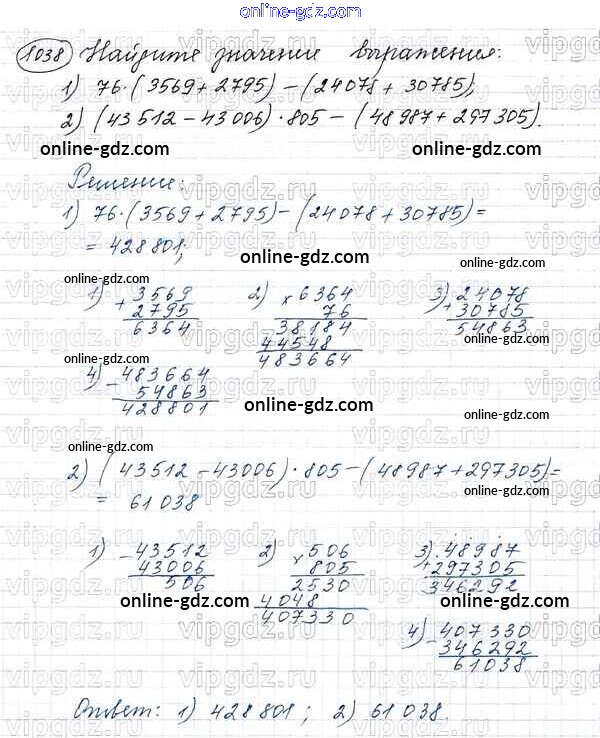 online-gdz.com
1038 Найдите значение выражения:
1) 76·(3569+2795)-(24078+30785);
2) (43512-43006)·805-(48987+297305).
online-gdz.com online-gdz.com
Решение:
1) 76·(3569+2795)-(24078+30785)=
= 428801;
online-gdz.com
online-gdz.com
1) 3569 2) 6364 3) 24078
+ 2795 × 76 + 30785
6364 38184 54863
44548
483664
online-gdz.com
4) 483664
- 54863
428801
online-gdz.com online-gdz.com
online-gdz.com
2) (43512-43006)·805-(48987+297305)=
= 61038
online-gdz.com
1) 43512 2) 506 3) 48987
- 43006 × 805 + 297305
506 2530 346292
4048
407330
online-gdz.com online-gdz.com
4) 407330
- 346292
61038
online-gdz.com
Ответ: 1) 428801; 2) 61038.
online-gdz.com
vipgdz.ru